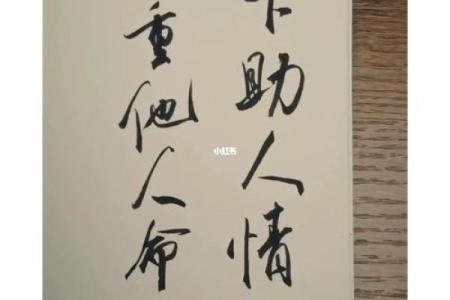 助人情
重他人命
小红书